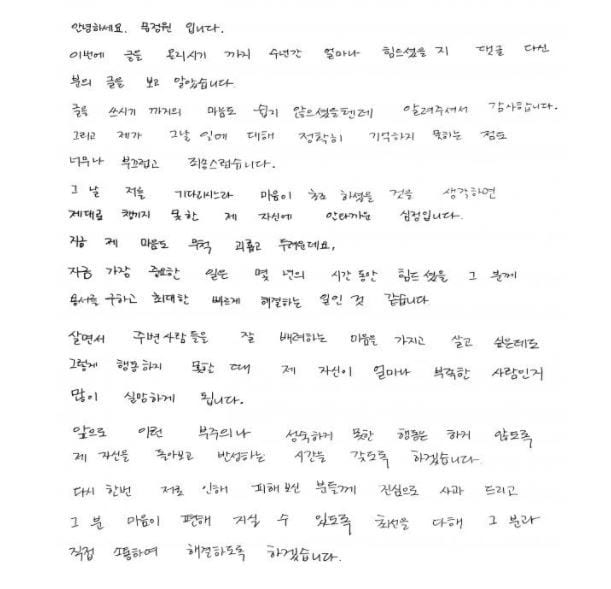 안녕하세요. 문정원 입니다.
이번에 글을 올리시기 까지 수년간 얼마나 힘드셨을 지 댓글 다신
분의 글을 보고 알았습니다
글을 쓰시기 까지의 마음도 쉽지 않으셨을텐데 알려주셔서 감사합니다.
그리고 제가 그날 일에 대해 정확히 기억하지 못하는 점도
너무나 부끄럽고 죄송스럽습니다.
그 날 저를 기다리시느라 마음이 초조 하셨을 것을 생각하면
제대로 챙기지 못한 제 자신에 안타까운 심정입니다.
지금 제 마음도 무척 괴롭고 두려운데요,
지금 가장 중요한 일은 몇 년의 시간 동안 힘드셨을 그 분께
용서를 구하고 최대한 빠르게 해결하는 일인 것 같습니다
살면서 주변사람들을 잘 배려하는 마음을 가지고 살고 싶은데도
그렇게 행동하지 못한 때 제 자신이 얼마나 부족한 사람인지
많이 실망하게 됩니다.
앞으로 이런 부주의나 성숙하지 못한 행동은 하지 않도록
제 자신을 돌아보고 반성하는 시간을 갖도록 하겠습니다.
다시 한번 저로 인해 피해 보신 분들께 진심으로 사과 드리고
그 분 마음이 편해 지실 수 있도록 최선을 다해 그 분과
직접 소통하여 해결하도록 하겠습니다.